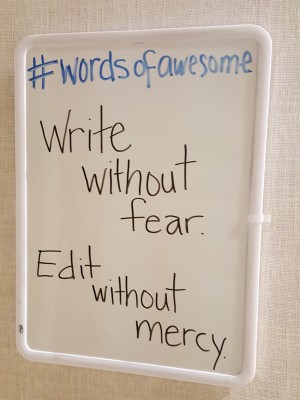 #wordsofawesome
Write
without
fear.
Edit
without
mercy.